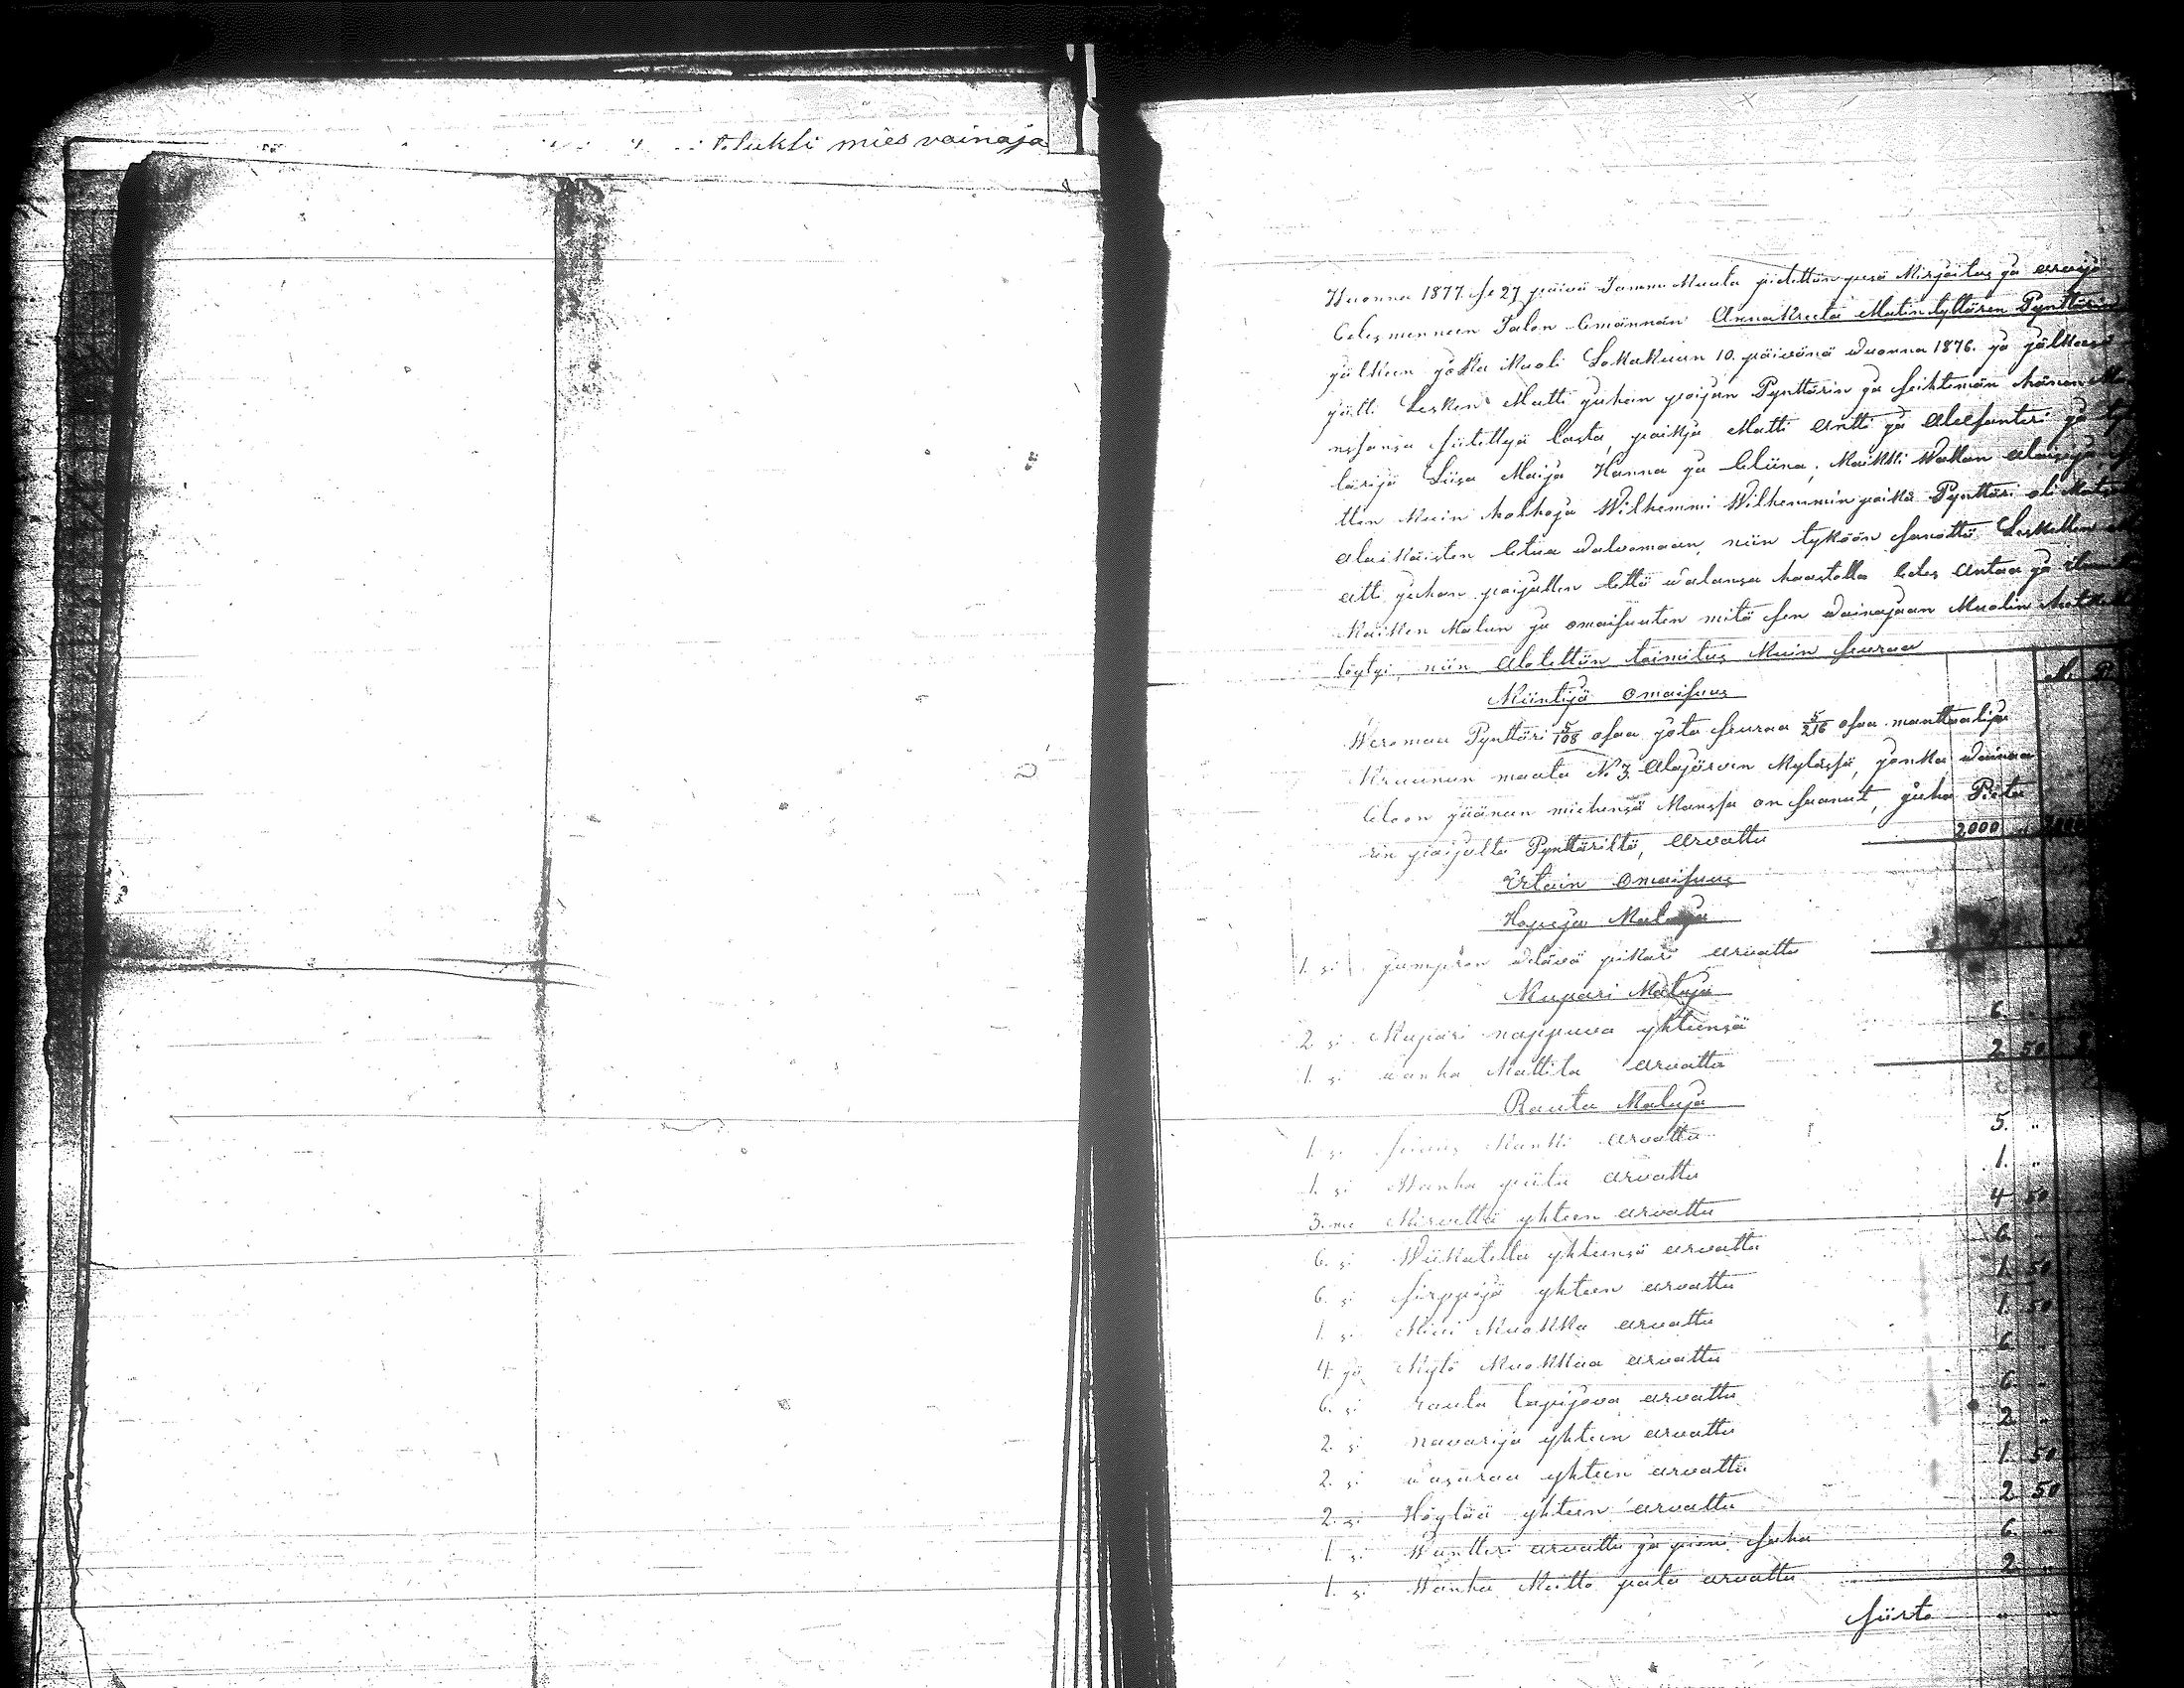 mies vainaja
Wuonna 1877. se 27 päivä Tammi Kuuta pidettiin pesä Kirjoitus ja arvijo
Edes menneen Talon Emännän Anna Kreeta Matintyttären Pynttärin
jälkeen joka Kuoli Lokakuun 10. päivänä Wuonna 1876. ja jälkeens
jätti Lesken Matti juhan poijan Pynttärin ja seihtemän hänen Ka
nssansa siitettyä lasta, poikja Matti Antti ja Aleksanteri ja ty
tärijä Liisa Maija Hanna ja Eliina, Kaikki Wallan Alaisija,
tten Kuin holhoja Wilhemmi Wilhemmin poika Pynttäri oli
Alaikäisten Etua Walvomaan, niin tyköön sanottu Leskellen
atti juhan poijallen Että Walansa haastolla Edes Antaa ja
Kaikken Kalun ja omaisuuten mitä sen Wainajaan Kuolin
löytyi, niin Alotettiin toimitus Kuin seuraa
M. P.
Kiintijä omaisuus
Weromaa Pynttäri 5/108 osaa jota seuraa 5/216 osaa manttaalija
Kruunun maata No 3. Alajärven Kylässä, jonka Wainaa
Eloon jäänen miehensä Kanssa on saanut, juha Pieta
rin poijalta Pynttäriltä, Arvattu 2000 "
Erlain omaisuus
Hopeja Kaluja
1. si jumpron pikari arvattu
Kupari Kaluja
2. si Kupari nappuva yhteensä 6. "
1. si wanha Kattila arvattu 2 50
Rauta Kaluja
1. si Kanki arvattu 5. "
1. si Wanha piilu arvattu 1. "
3. me Kirvettä yhteen arvattu 4 50
6. si Wiikatetta yhteensä arvattu 6
6. si sirppijä yhteen arvattu 1. 50
1. si Kivi Kuokka arvattu 1. 50
4. jä Kytö Kuokkaa arvattu 6
6. si rauta lapijova arvattu 6 "
2. si navarija yhteen arvattu 2 "
2. si wasaraa yhteen arvattu 1. 50
2. si Höylää yhteen arvattu 2 50
1. si arvattu ja pieni saha 6 "
1. si Wanha Keitto pata arvattu 2 "
siirto " "